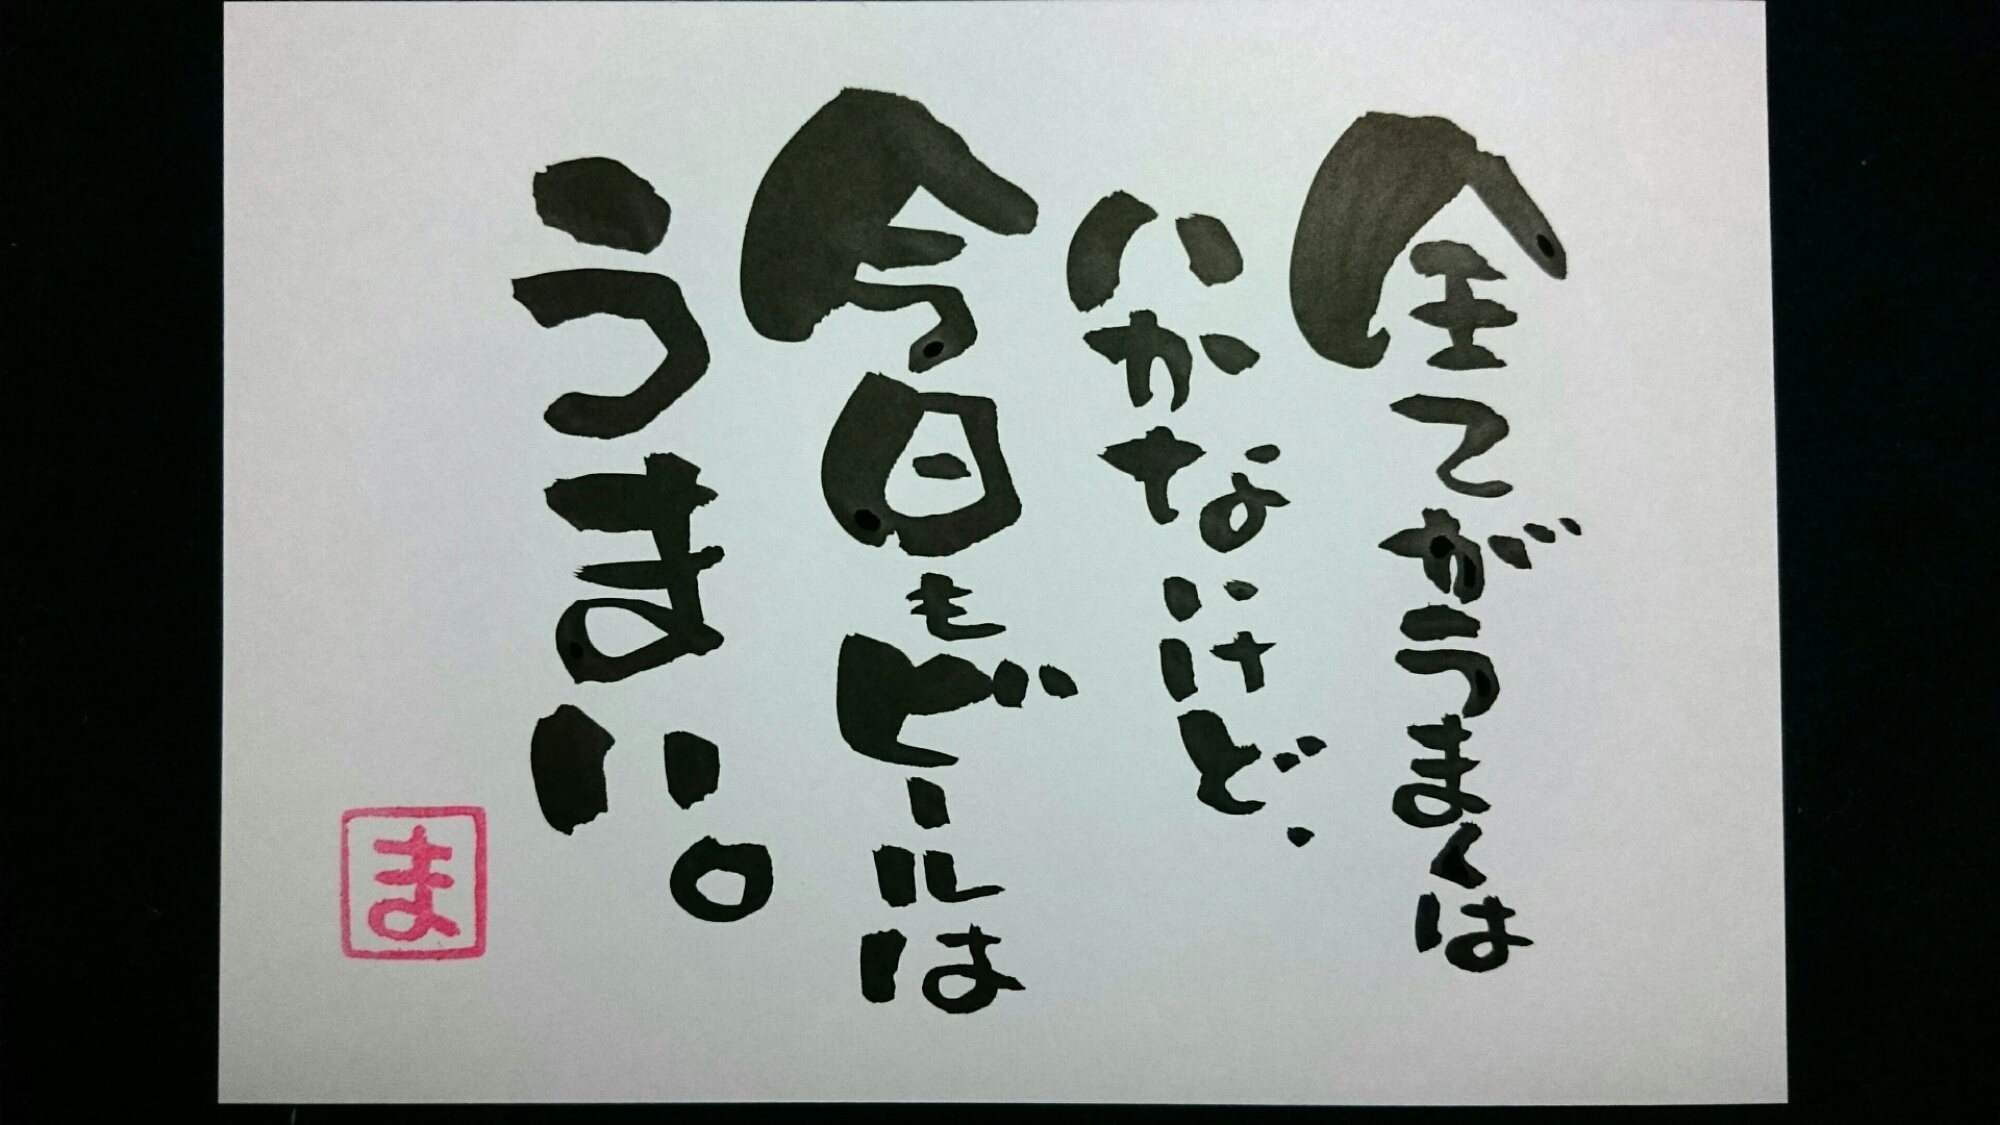 全てがうまくは
いかないけど、
今日もビールは
うまい。
ま